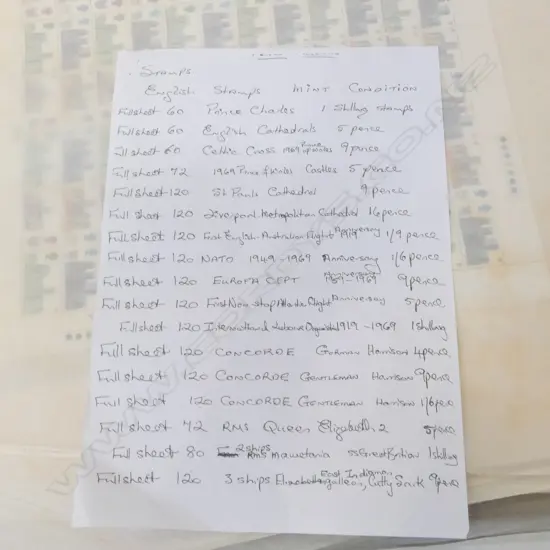 Stamps
English Stamps MINT CONDITION
Full sheet 60 Prince Charles 1 Shilling stamps
Full sheet 60 English Cathedrals 5 pence
Full sheet 60 Celtic Cross 1969 Prince of Wales 9 pence
Full sheet 72 1969 Prince of Wales Castles 5 pence
Full sheet 120 St Pauls Cathedral 9 pence
Full sheet 120 Liverpool Metropolitan Cathedral 16 pence
Full sheet 120 First English Australian Flight 1919 Anniversary 1/9 pence
Full sheet 120 NATO 1949-1969 Anniversary 1/6 pence
Full sheet 120 EUROPA CEPT Anniversary 1959-1969 9 pence
Full sheet 120 First Non stop Atlantic Flight Anniversary 5 pence
Full sheet 120 International Labour 1919-1969 1 shilling
Full sheet 120 CONCORDE Harrison 4 pence
Full sheet 120 CONCORDE GENTLEMAN Harrison 9 pence
Full sheet 120 CONCORDE GENTLEMAN Harrison 1/6 pence
Full sheet 72 RMS Queen Elizabeth 2 5 pence
Full sheet 80 2 ships RMS Mauretania SS Great Britian 1 shilling
Full sheet 120 3 ships galleon, East Indiaman, Cutty Sark 9 pence